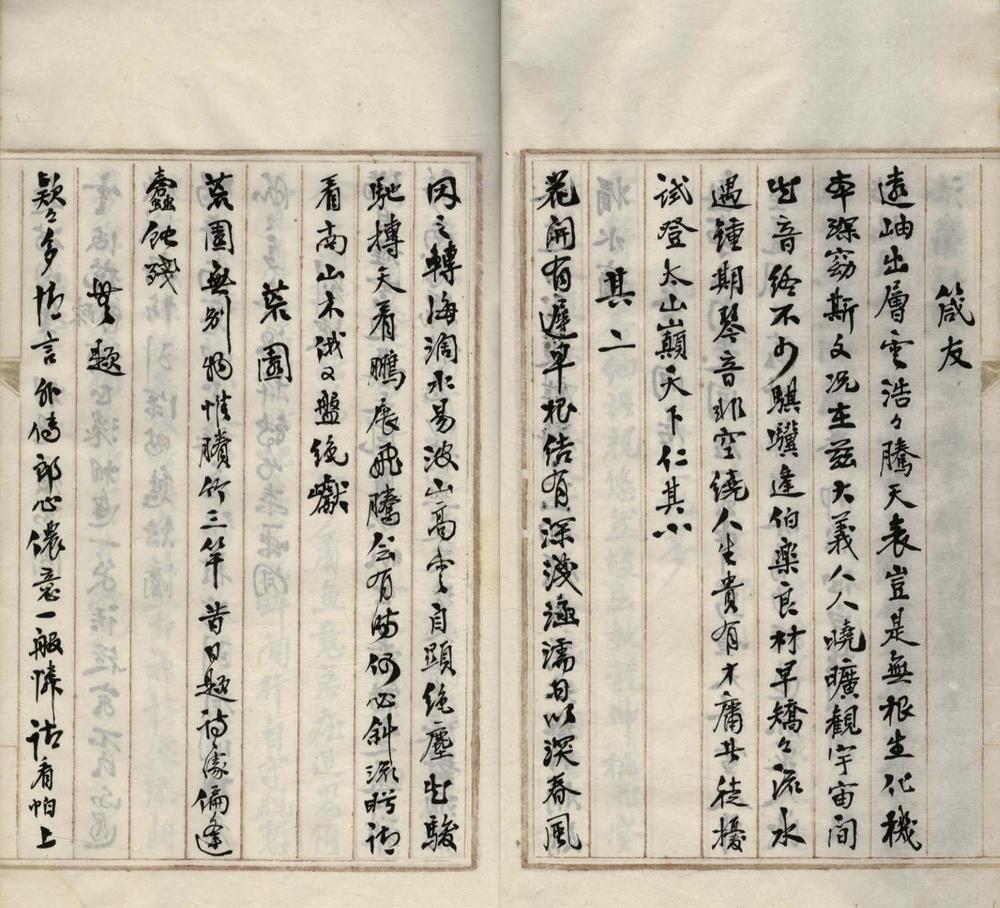 箴友
遠岫出層雲浩々騰天表豈是無根生化機
本深窈斯文况在兹大義人人曉曠觀宇宙間
出音終不少騏驥逢伯樂良材早矯々流水
遇鍾期琴音非空繞人生貴有才庸其徒擾
試登太山巔天下仁其小
其二
花開有遲早根结有深淺涵濡日以深春風
因之轉海濶水易波山高雲自顯绝塵出駿
馳摶天看鵬展飛騰会有時何必斜流眄請
看南山木俄々盤绝巘
荒園
荒園無别物惟賸竹三竿昔日題詩處偏逢
蠹蝕殘
無題
欵々多情言外傳郎心儂意一般憐請看帕上